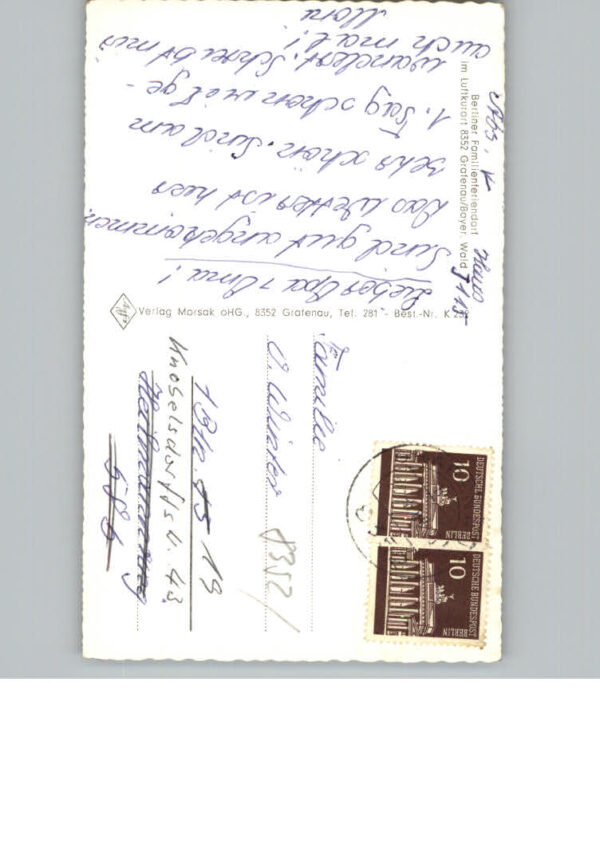 Lieber Opa + Oma!
Sind gut angekommen.
Das Wetter ist hier
sehr schön. Sind am
1. Tag schon viel ge-
wandert. Schreibt mir
auch mal!
Berliner Familienferiendorf
im Luftkurort 8352 Grafenau/Bayer. Wald
Haus
Verlag Morsak oHG., 8352 Grafenau, Tel. 281 - Best.-Nr. K
Familie
O. Winter
1 Bln. 19
Knobelsdorffstr. 43
8352/
10
DEUTSCHE BUNDESPOST
BERLIN
10
DEUTSCHE BUNDESPOST
BERLIN